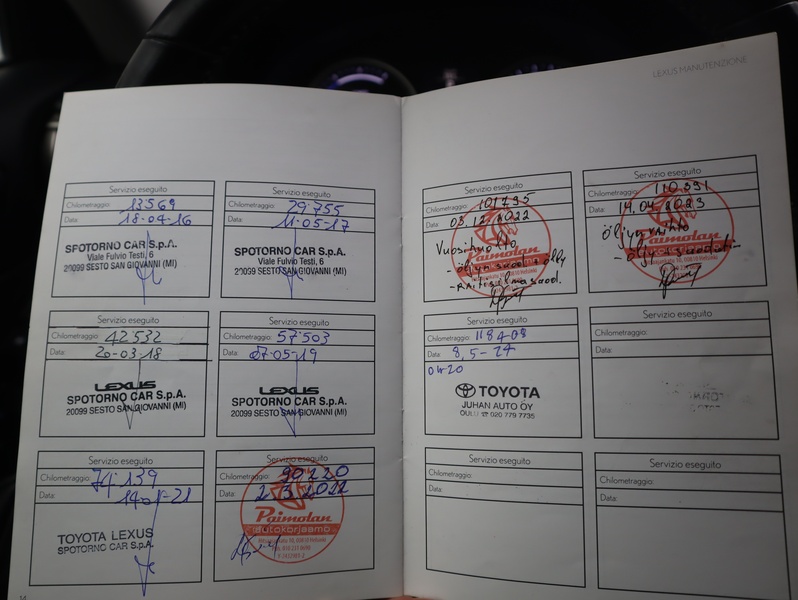 LEXUS MANUTENZIONE
Servizio eseguito
Chilometraggio: 13569
Data: 18-04-16
SPOTORNO CAR S.p.A.
Viale Fulvio Testi, 6
20099 SESTO SAN GIOVANNI (MI)
Servizio eseguito
Chilometraggio: 29.755
Data: 11-05-17
SPOTORNO CAR S.p.A.
Viale Fulvio Testi, 6
20099 SESTO SAN GIOVANNI (MI)
Servizio eseguito
Chilometraggio: 42'532
Data: 20-03-18
LEXUS
SPOTORNO CAR S.p.A.
20099 SESTO SAN GIOVANNI (MI)
Servizio eseguito
Chilometraggio: 57'503
Data: 07-05-19
LEXUS
SPOTORNO CAR S.p.A.
20099 SESTO SAN GIOVANNI (MI)
Servizio eseguito
Chilometraggio: 74'139
Data: 14-01-21
TOYOTA LEXUS
SPOTORNO CAR S.p.A.
Servizio eseguito
Chilometraggio: 90220
Data: 2.3.2022
Paimolan
autokorjaamo
Servizio eseguito
Chilometraggio: 101735
Data: 03.12.2022
Vuosihuolto
- öljyn suod. + öljy
- raitisilmasuod.
Paimolan
Servizio eseguito
Chilometraggio: 110 391
Data: 14.04.2023
öljynvaihto
- öljy + suodatin
Paimolan
Servizio eseguito
Chilometraggio: 118408
Data: 8,5-24
0W20
TOYOTA
JUHAN AUTO OY
OULU ☎ 020 779 7735
Servizio eseguito
Chilometraggio:
Data:
Servizio eseguito
Chilometraggio:
Data:
Servizio eseguito
Chilometraggio:
Data: